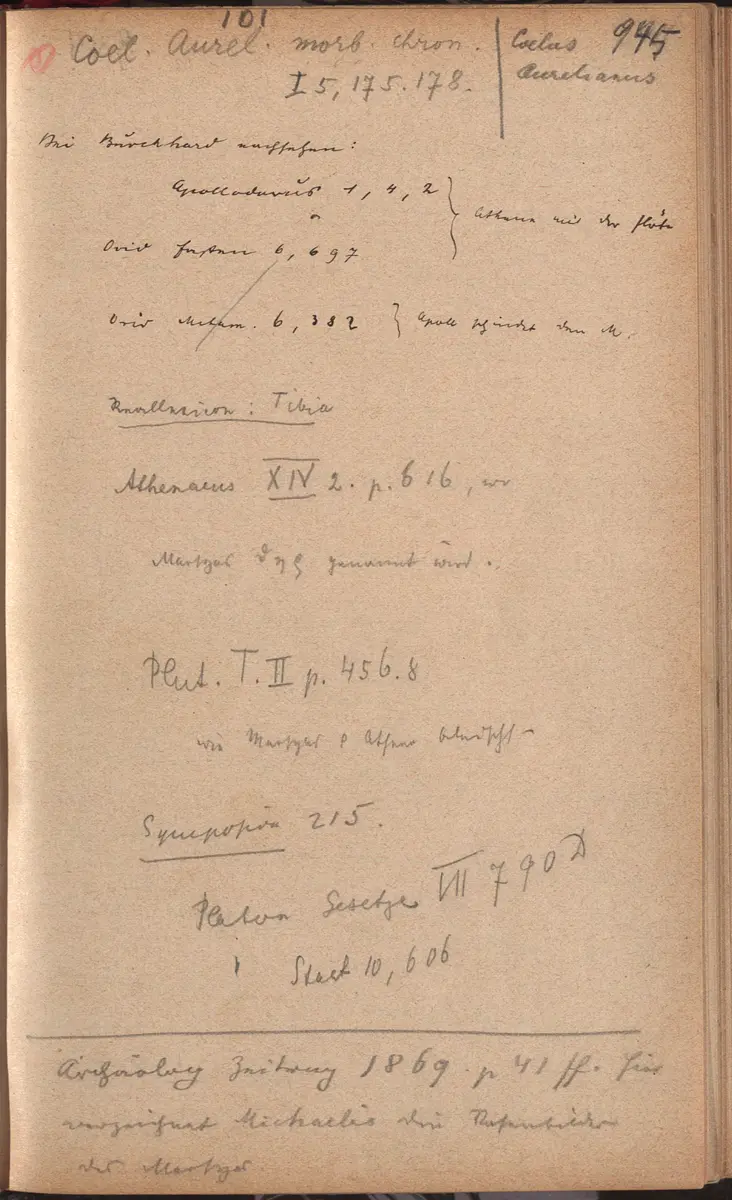 101
Coel. Aurel. morb. chron.
I 5, 175. 178.
Coelus 945
Aurelianus
Bei Burckhard nachsehen:
Apollodorus 1, 4, 2
Athene mit der Flöte
Ovid Fasten 6, 697
Ovid Metam. 6, 382 } Apoll schindet den M.
Reallexicon: Tibia
Athenaeus XIV 2. p. 616, wo
Marsyas genannt wird.
Plut. T. II p. 456. 8
wie Marsyas Athene
Symposion 215.
Platon Gesetze VII 790 D
Staat 10, 606
Archäolog Zeitung 1869. p 41 ff. hier
verzeichnet Michaelis die Vasenbilder
des Marsyas.